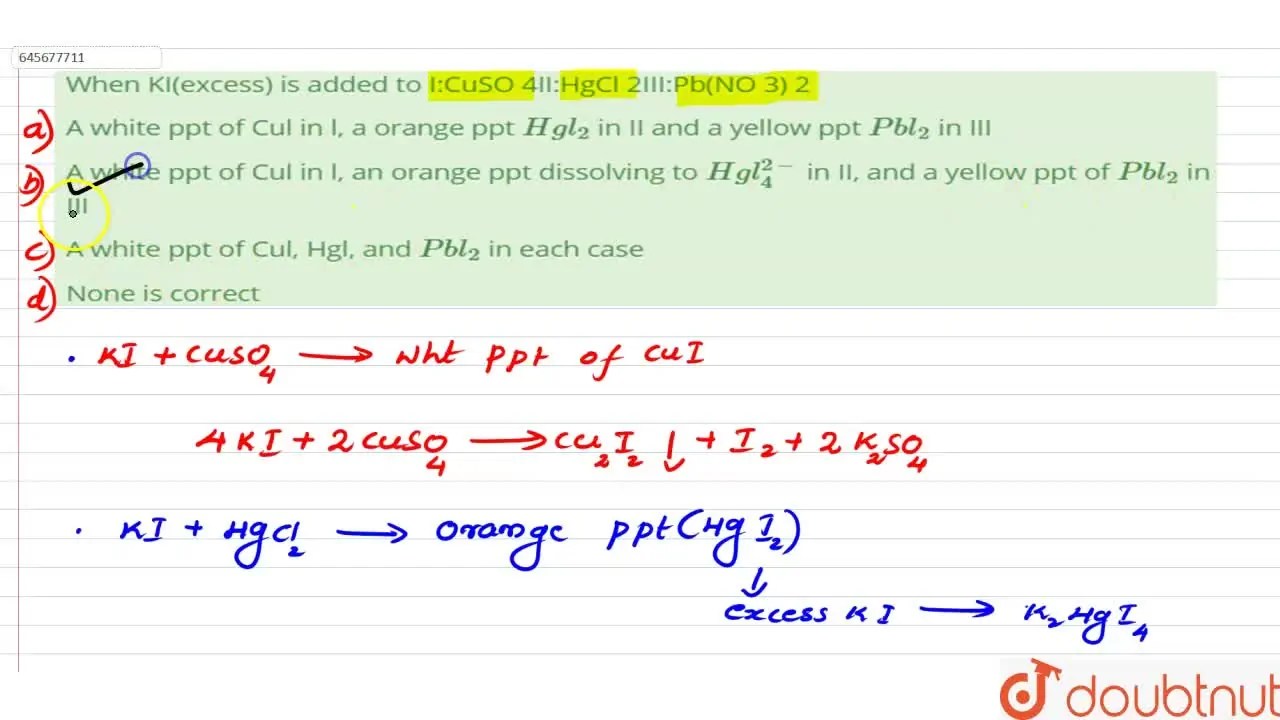 645677711
When KI(excess) is added to I:CuSO 4II:HgCl 2III:Pb(NO 3) 2
a) A white ppt of CuI in l, a orange ppt HgI₂ in II and a yellow ppt PbI₂ in III
b) A white ppt of CuI in l, an orange ppt dissolving to HgI₄²⁻ in II, and a yellow ppt of PbI₂ in
III
c) A white ppt of CuI, HgI, and PbI₂ in each case
d) None is correct
• KI + CuSO₄ → Wht ppt of CuI
4KI + 2CuSO₄ → Cu₂I₂ ↓ + I₂ + 2K₂SO₄
• KI + HgCl₂ → Orange ppt (HgI₂)
↓
excess KI → K₂HgI₄
doubtnut